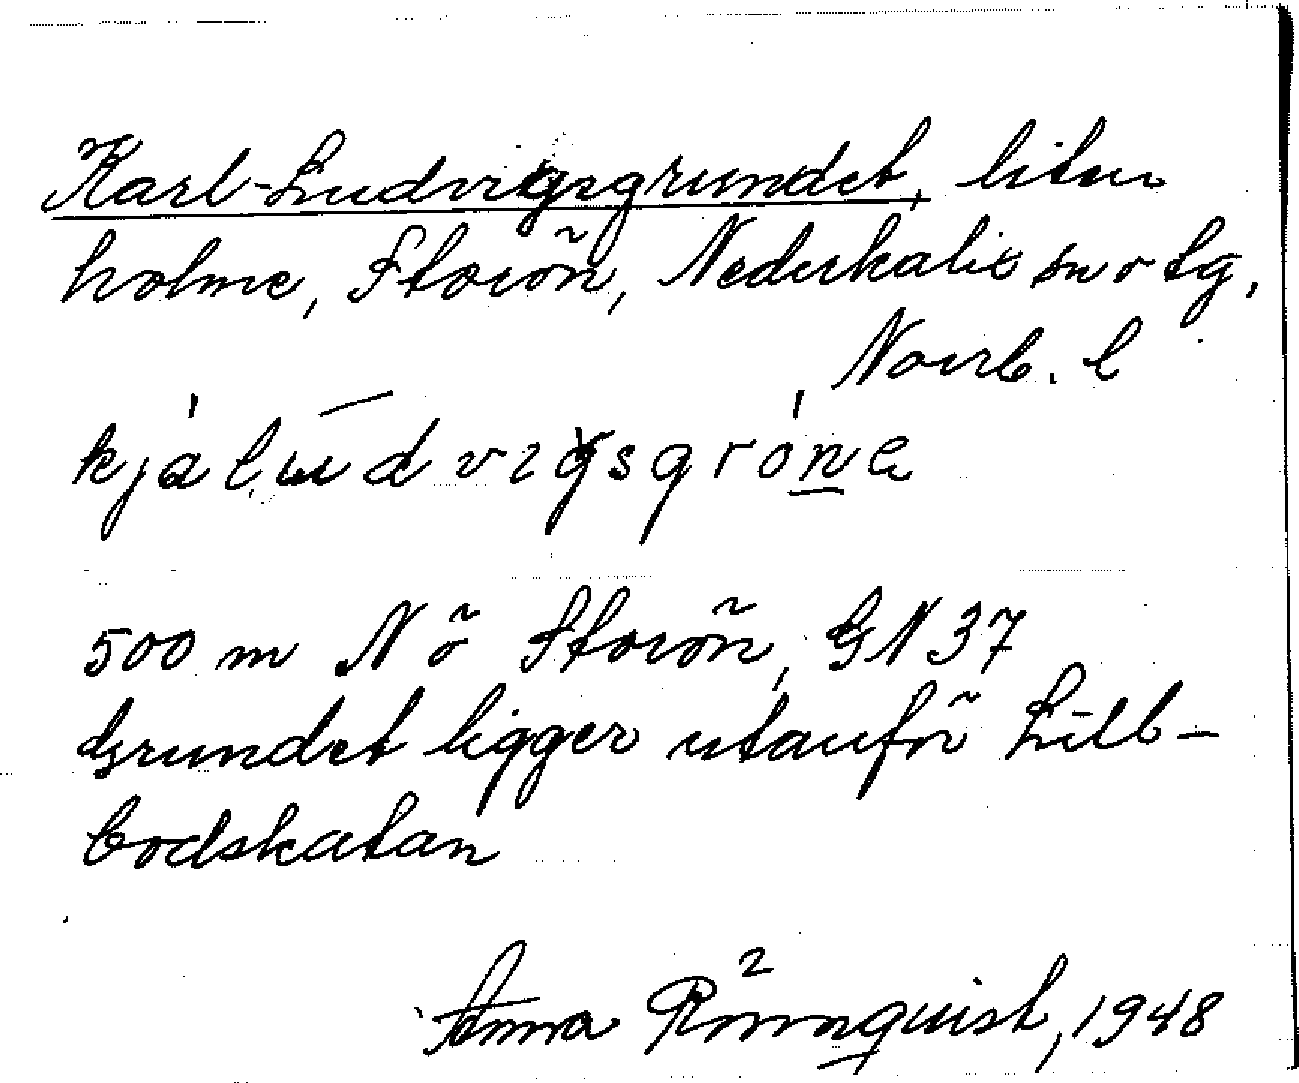 Karl-Ludvigsgrundet, liten
holme, Storön, Nederkalix sn o tg,
Norrb. l
500 m NÖ Storön, GN 37
Grundet ligger utanför Lill-
bodskatan
Anna Rönnquist, 1948